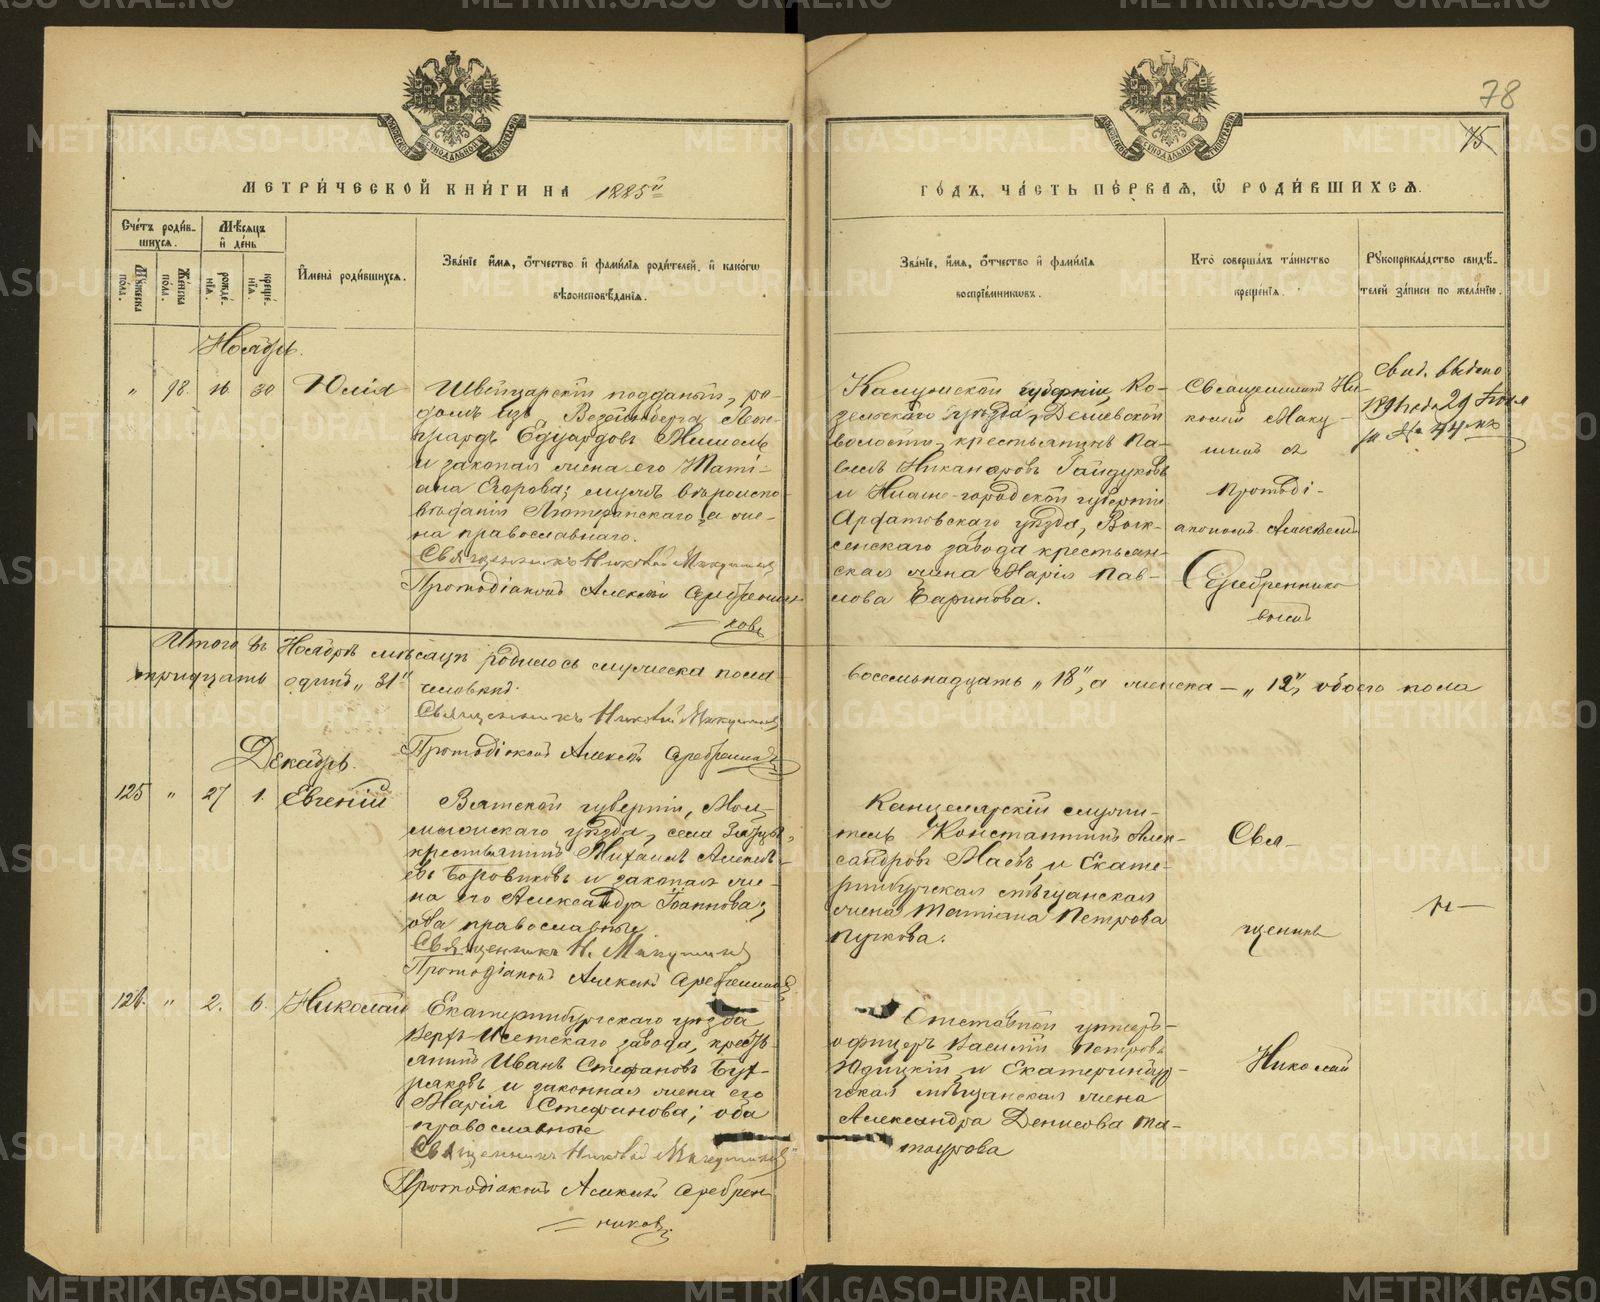 78
75
МЕТРИ́ЧЕСКОЙ КНИ́ГИ НА 1885й
ГО́ДЪ, ЧА́СТЬ ПЕ́РВАЯ, Ѿ РОДИ́ВШИХСЯ.
Сче́тъ роди́в-
шихся.
Мѣ́сяцъ
и де́нь
Му́жеска по́ла.
Же́нска по́ла.
рожде́нїя.
креще́нїя.
Имена̀ роди́вшихся.
Зва́нїе и́мя, о́тчество и фами́лїя роди́телей, и како́гѡ
вѣроисповѣ́данїя.
Зва́нїе, и́мя, о́тчество и фами́лїя
воспрїе́мникѡвъ.
Кто̀ соверша́лъ та́инство
креще́нїя.
Рꙋкоприкла́дство свидѣ́-
телей за́писи по жела́нїю.
Ноябрь.
" 98. 16 30 Юлія
Швейцарскій подданый, ро-
домъ изъ Лео-
нгардъ Едуардовъ
и законная жена его Тати-
ана Егорова; мужъ вѣроиспо-
вѣданія Лютеранскаго, а же-
на православнаго.
Священникъ Николай
Протодіаконъ Алексѣй Серебренни-
ковъ
Калужской губерніи, Ко-
зельскаго уѣзда,
волости, крестьянинъ Па-
велъ Никаноровъ Гайдуковъ
и Ниже-городской губерніи
Ардатовскаго уѣзда, Вык-
сенскаго завода крестьян-
ская жена Марія Пав-
лова Баринова.
Священникъ Ни-
колай Маку-
шинъ съ
протоді-
акономъ Алексѣемъ
Серебреннико-
вымъ
Свид. выдано
29
за № 44
Итого въ Ноябрѣ мѣсяцѣ родилось мужеска пола
восемьнадцать „18", а женска — „12", обоего пола
тридцать одинъ „31"
человѣкъ.
Священникъ Николай
Протодіаконъ Алексѣй Серебренниковъ
Декабрь.
125 " 27 1. Евгеній
Вятской губерніи, Мал-
мыжскаго уѣзда, села
крестьянинъ Михаилъ Алексѣ-
евъ Боровиковъ и законная же-
на его Александра Іоаннова;
оба православные
Священникъ Н.
Протодіаконъ Алексѣй Серебренниковъ
Канцелярскій служи-
тель Константинъ Алек-
сандровъ Маевъ, и Екате-
ринбургская мѣщанская
жена Татіана Петрова
Пункова.
Свя-
щенникъ
126. " 2. 6. Николай
Екатеринбургскаго уѣзда
Верхъ-Исетскаго завода, кресть-
янинъ Иванъ Стефановъ
и законная жена его
Марія Стефанова; оба
православные
Священникъ Николай
Протодіаконъ Алексѣй Серебрен-
никовъ
Отставной унтеръ-
офицеръ Василій Петровъ
Юдицкій и Екатеринбур-
гская мѣщанская жена
Александра Денисова Та-
таурова
Николай
METRIKI.GASO-URAL.RU